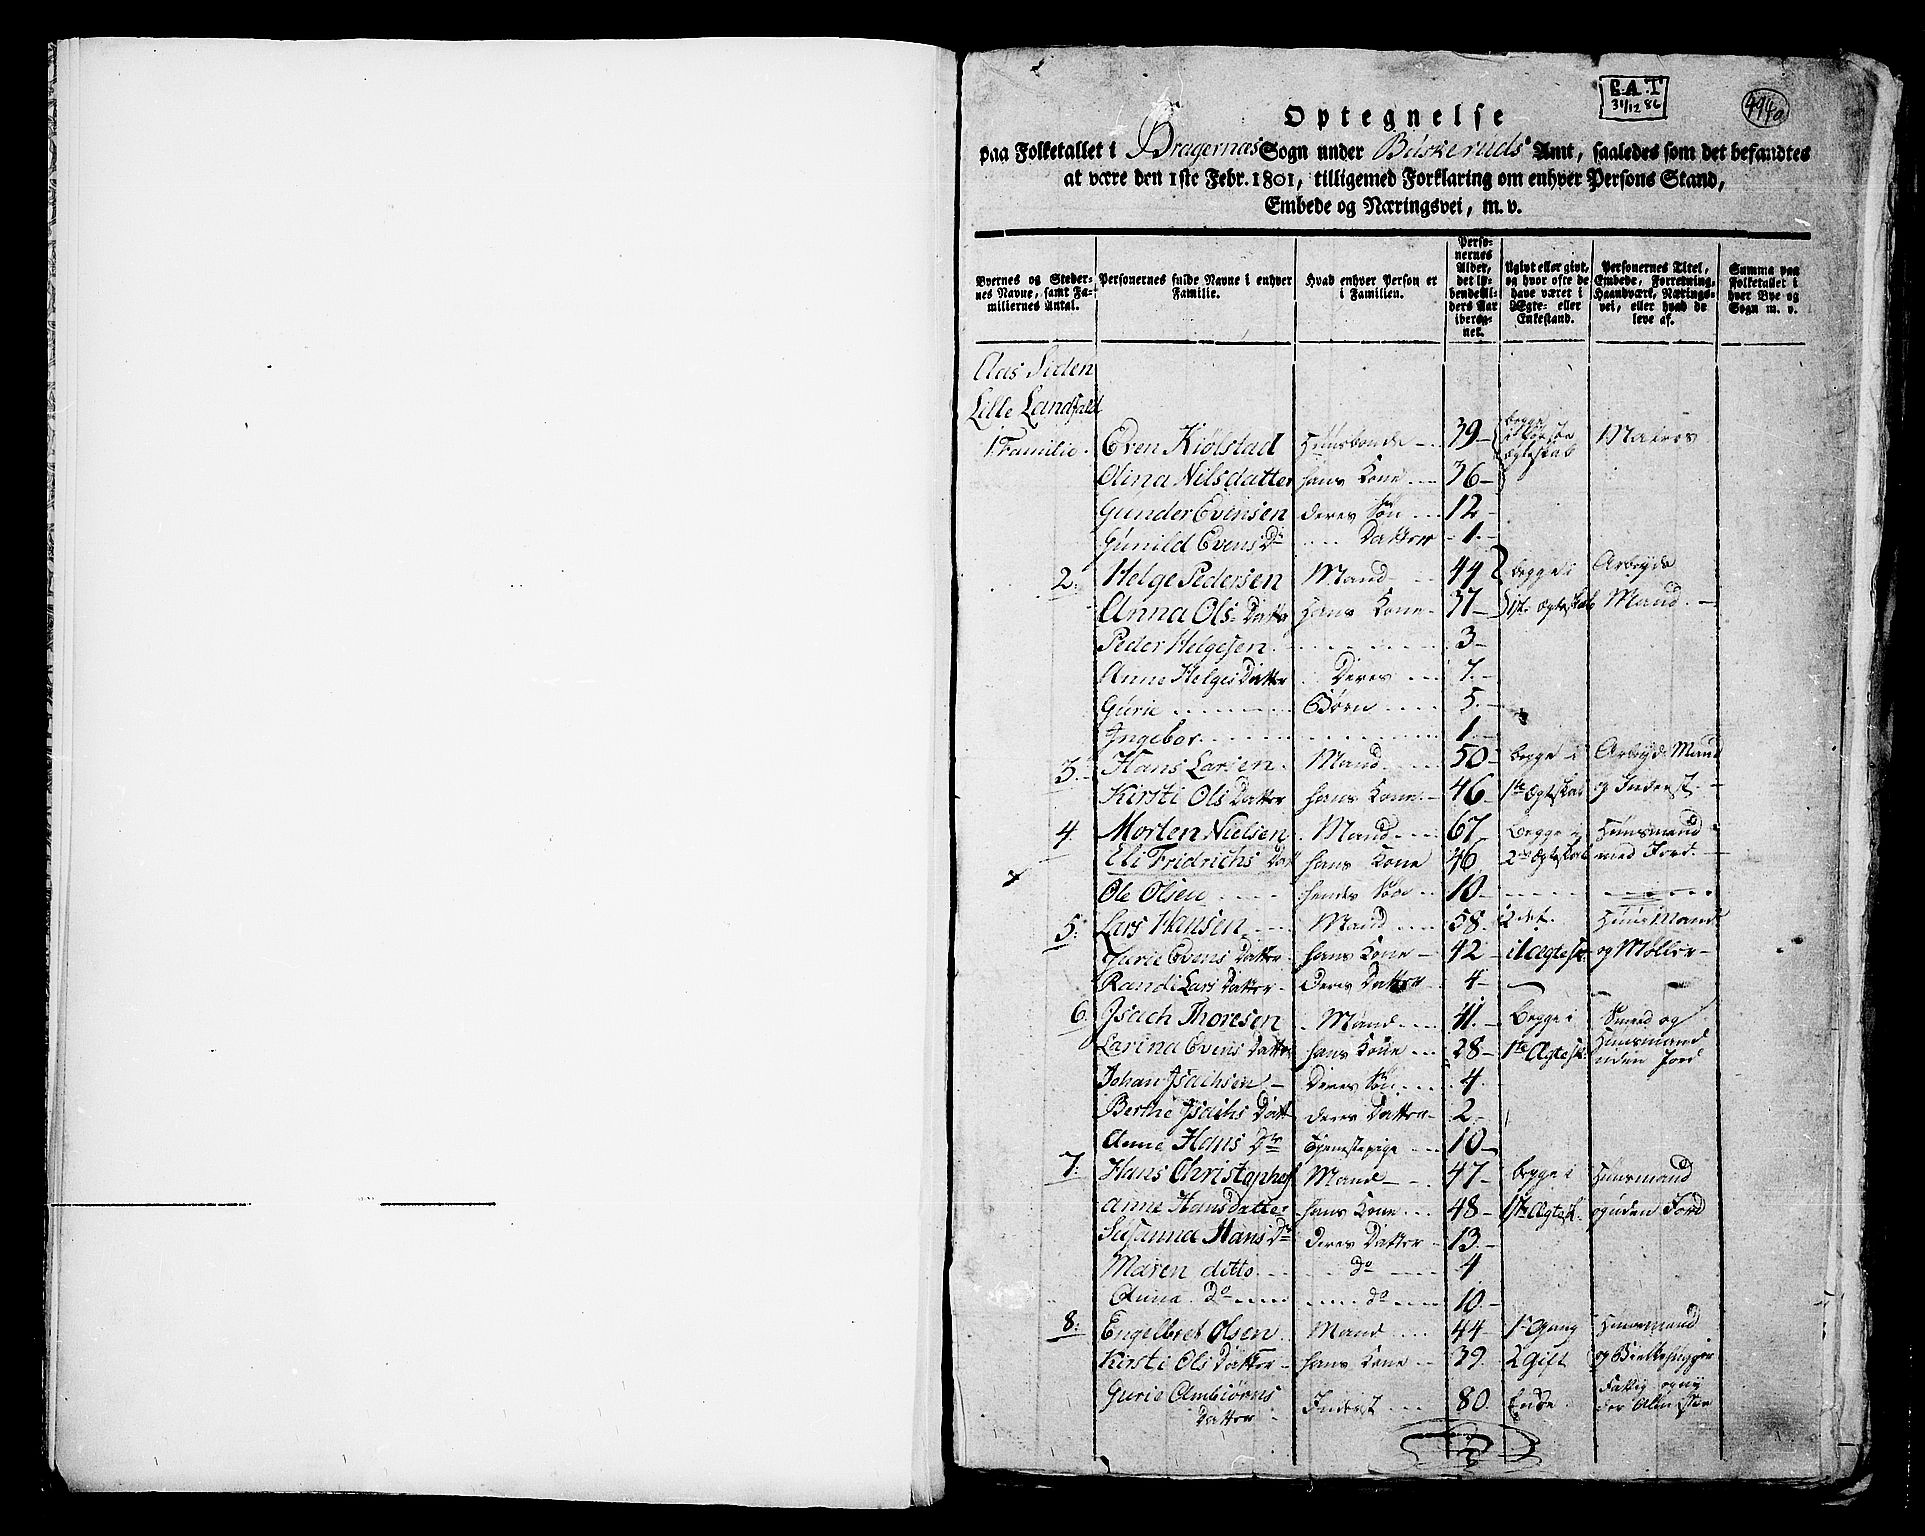 E.A.T
31/12 86
494a
Optegnelse
paa Folketallet i Bragernæs Sogn under Buskeruds Amt, saaledes som det befandtes
at være den 1ste Febr. 1801, tilligemed Forklaring om enhver Persons Stand,
Embede og Næringsvei, m. v.
Byernes og Stedernes Navne, samt Familiernes Antal.
Personernes fulde Navne i enhver Familie.
Hvad enhver Person er i Familien.
Personernes Alder, det løbende Alders Aar iberegnet.
Ugivt eller givt, og hvor ofte de have været i Ægte- eller Enkestand.
Personernes Titel, Embede, Forretning, Haandværk, Næringsvei, eller hvad de leve af.
Summa paa Folketallet i hver Bye og Sogn m. v.
Aas Siden
Lille Landfald
1 Familie. Even Kiølstad Huusbonde 39 begge i første ægteskab Matros
Olina Nilsdatter hans Kone 36
Gunder Evensen deres Søn 12
Gunild Evens Dr Datter 1
2. Helge Pedersen Mand 44 begge i Arbeyds
Anna Ols Datter hans Kone 37 1st Ægteskab Mand
Peder Helgesen 3
Anne Helges Datter Deres 7
Gurie Børn 5
Ingebor 1
3. Hans Larsen Mand 50 begge i Arbeyds Mand
Kirsti Ols Datter hans Kone 46 1te Ægteskab og Inderst
4. Morten Nielsen Mand 67 begge i Huusmand
Eli Fridrichs Datt hans Kone 46 2 Ægteskab med Jord
Ole Olsen hendes Søn 10
5. Lars Hansen Mand 58 2det Huusmand
Evens Datter hans Kone 42 Ægtesk. og Møller
Randi Lars Datter Deres Datter 4
6. Isach Thoresen Mand 41 Begge i Smed og
Larina Evens Datter hans Kone 28 1te Ægtesk. Huusmand uden Jord
Johan Isachsen Deres Søn 4
Berthe Isachs Datt deres Datter 2
Anne Hans Dr Tjenestepige 10
7. Hans Christophers Mand 47 begge i Huusmand
Anne Hansdatter hans Kone 48 1te Ægtesk. uden Jord
Susanna Hans Dr deres Datter 13
Maren ditto do 4
Anna Do do 10
8. Engelbret Olsen Mand 44 1 Gang Huusmand
Kirsti Ols Datter hans Kone 39 2 Gift og Bielkehugger
Gurie Ambiørns Datter Inderst 80 Enke Fattig og nyder Almisse